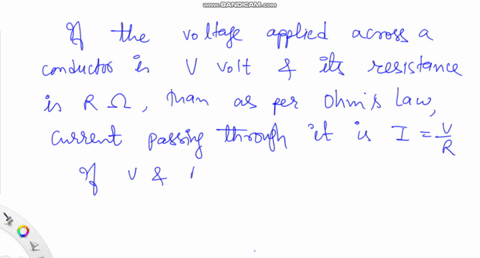 WWW.BANDICAM.COM
If the voltage applied across a
conductor is V volt & its resistance
is R Ω, than as per Ohm's law,
current passing through it is I = V/R
If V &